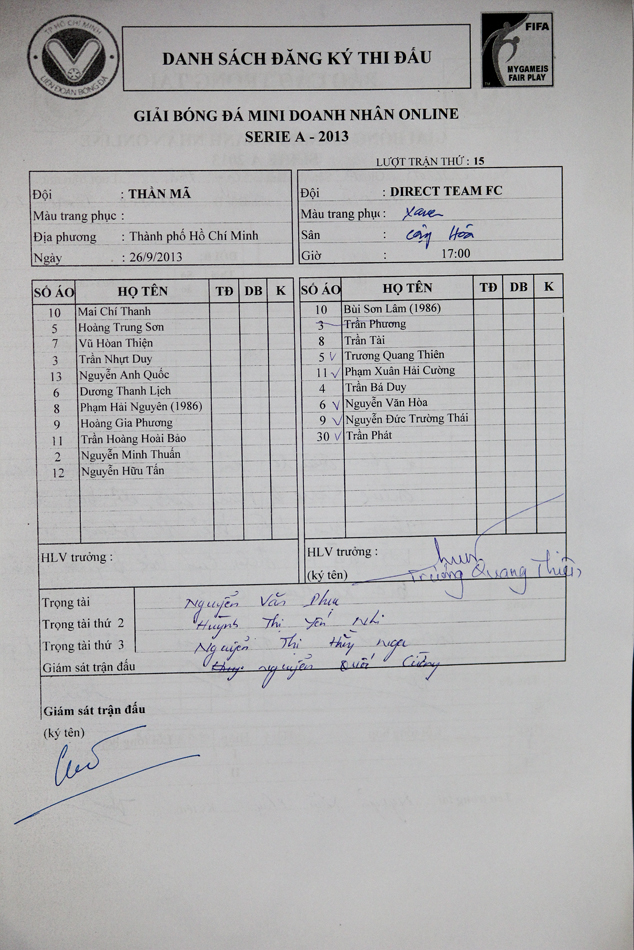 TP HỒ CHÍ MINH
LIÊN ĐOÀN BÓNG ĐÁ
DANH SÁCH ĐĂNG KÝ THI ĐẤU
FIFA
MYGAMEIS
FAIR PLAY
GIẢI BÓNG ĐÁ MINI DOANH NHÂN ONLINE
SERIE A - 2013
LƯỢT TRẬN THỨ : 15
Đội : THẦN MÃ
Màu trang phục :
Địa phương : Thành phố Hồ Chí Minh
Ngày : 26/9/2013
Đội : DIRECT TEAM FC
Màu trang phục :
Sân : Cộng Hòa
Giờ : 17:00
SỐ ÁO HỌ TÊN TĐ DB K
10 Mai Chí Thanh
5 Hoàng Trung Sơn
7 Vũ Hòan Thiện
3 Trần Nhựt Duy
13 Nguyễn Anh Quốc
6 Dương Thanh Lịch
8 Phạm Hải Nguyên (1986)
9 Hoàng Gia Phương
11 Trần Hoàng Hoài Bảo
2 Nguyễn Minh Thuấn
12 Nguyễn Hữu Tấn
SỐ ÁO HỌ TÊN TĐ DB K
10 Bùi Sơn Lâm (1986)
3 Trần Phương
8 Trần Tài
5 Trương Quang Thiên
11 Phạm Xuân Hải Cường
4 Trần Bá Duy
6 Nguyễn Văn Hòa
9 Nguyễn Đức Trường Thái
30 Trần Phát
HLV trưởng :
HLV trưởng :
(ký tên) Trương Quang Thiên
Trọng tài Nguyễn Văn Phụ
Trọng tài thứ 2 Huỳnh Thị Yến Nhi
Trọng tài thứ 3 Nguyễn Thị Thùy Nga
Giám sát trận đấu Nguyễn Quốc Cường
Giám sát trận đấu
(ký tên)